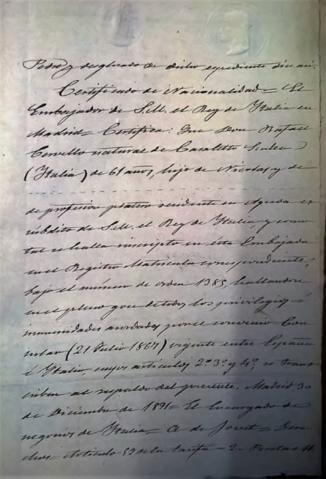 Pedro y desglosado de dicho expediente dice así.
Certificado de Nacionalidad = El
Embajador de S.M. el Rey de Italia en
Madrid = Certifica: Que Don Rafael
natural de
(Italia) de 61 años, hijo de Nicolas y de
de profesion platero residente en es
subdito de S.M. el Rey de Italia y como
tal se halla inscripto en esta Embajada
en el Registro Matricula correspondiente,
bajo el número de orden 1385, hallandose
en el pleno goce de todos los privilegios é
inmunidades acordadas por el convenio Con
sular (21 Julio 1867) vigente entre España
é Italia, cuyos articulos 2º 3º y 4º, se trans
criben al respaldo del presente. Madrid 30
de Diciembre de 1891 = El Encargado de
negocios de Italia = = Dere
chos Articulo 59 de la tarifa =